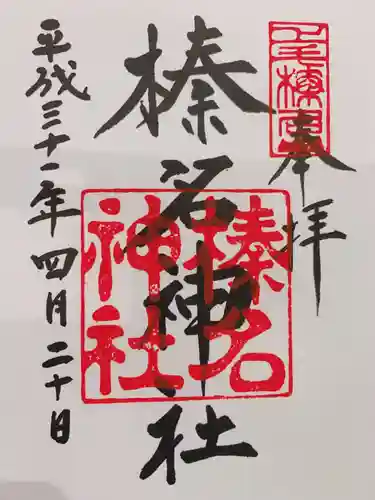 奉拝
榛名神社
榛名神社
平成三十一年四月二十日